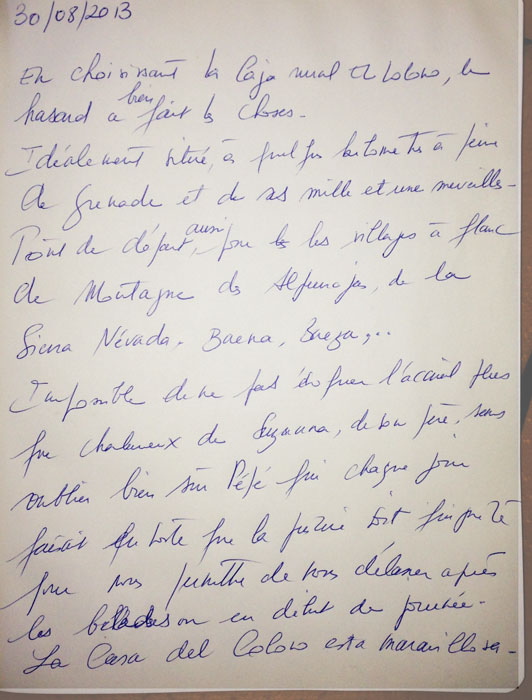 30/08/2013
En choisissant la Caja rural El Coloro, le
hasard a bien fait les choses.
Idéalement situé, à quelques kilomètres à peine
de Grenade et de ses mille et une merveilles.
Point de départ aussi, pour les villages à flanc
de Montagne des Alpujajas, de la
Sierra Névada, Baena, Baeza,...
Impossible de ne pas évoquer l'accueil plus
que chaleureux de Suzanna, de son père, sans
oublier bien sûr Pépé qui chaque jour
faisait en sorte que la piscine soit
pour nous permettre de nous délasser après
les ballades ou en début de journée.
La Casa del Coloro esta maravillosa.